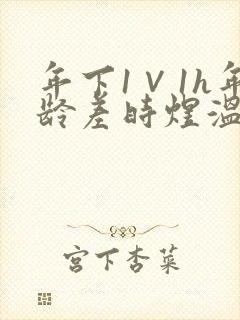 年下1V1h年
龄差时煜温
宫下杏菜